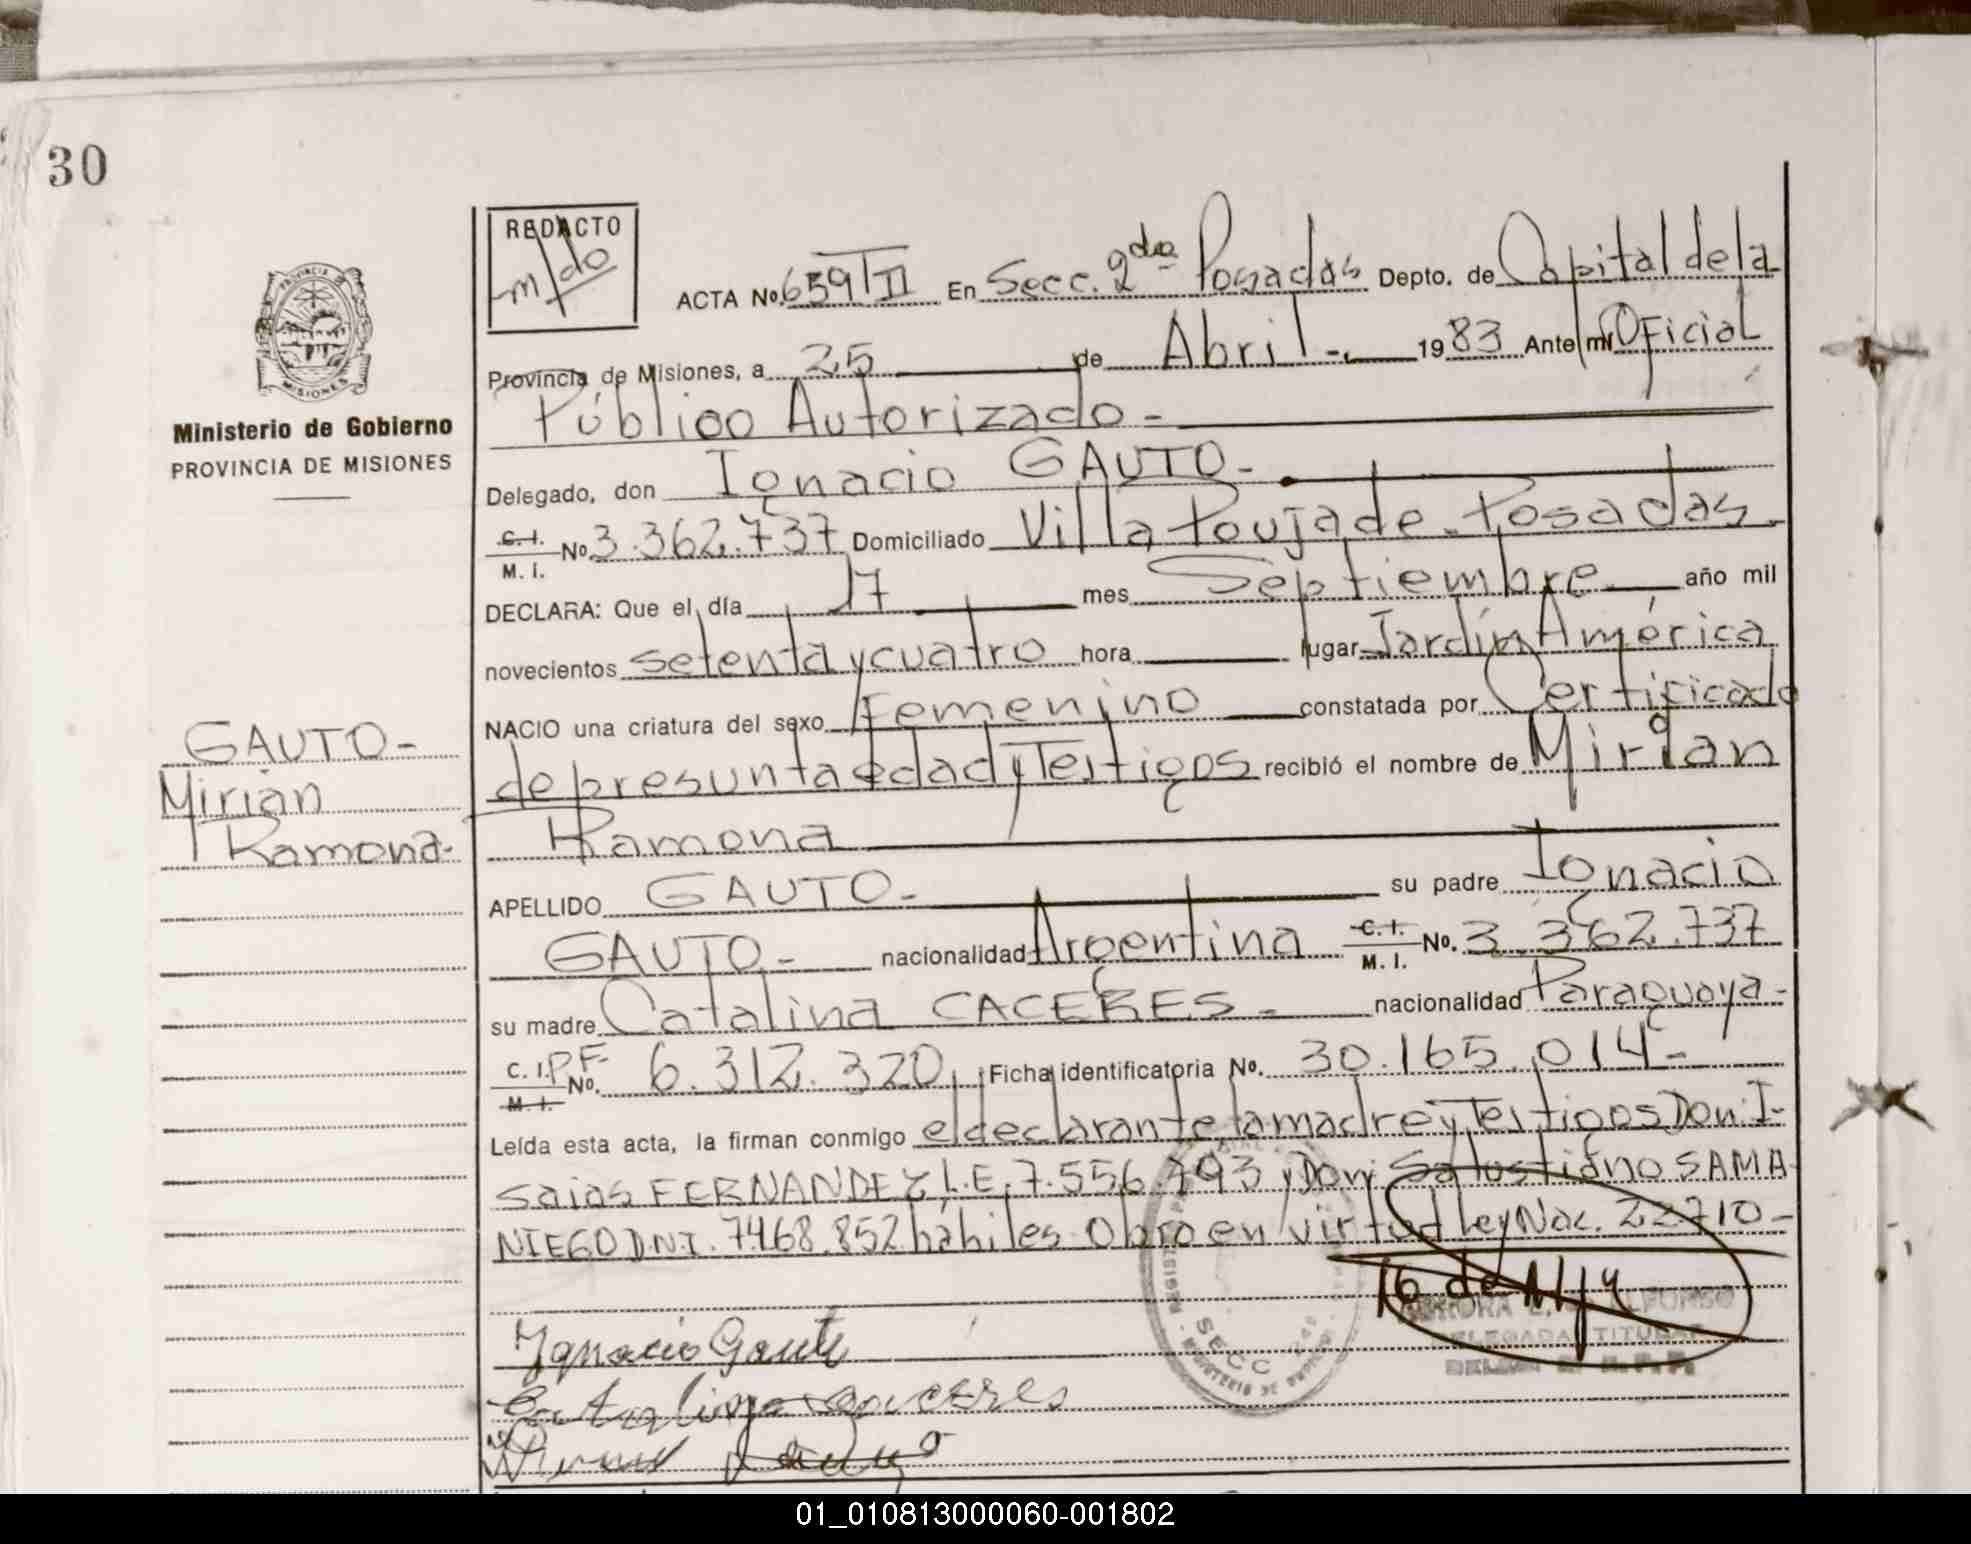 30
REDACTO
m/do
PROVINCIA DE
MISIONES
Ministerio de Gobierno
PROVINCIA DE MISIONES
ACTA No. 659 T II En Secc. 2da Posadas Depto. de Capital de la
Provincia de Misiones, a 25 de Abril 1983 Ante mi Oficial
Público Autorizado -
Delegado, don Ignacio GAUTO -
C. I. M. I. No. 3.362.737 Domiciliado Villa Poujade - Posadas -
DECLARA: Que el día 17 mes Septiembre año mil
novecientos setenta y cuatro hora lugar Jardín América
NACIO una criatura del sexo Femenino constatada por Certificado
de presunta edad y Testigos recibió el nombre de Mirian
Ramona
GAUTO -
Mirian
Ramona -
APELLIDO GAUTO - su padre Ignacio
GAUTO - nacionalidad Argentina C. I. M. I. No. 3.362.737
su madre Catalina CACERES - nacionalidad Paraguaya -
C. I. P.F. M. I. No. 6.312.320 Ficha identificatoria No. 30.165.014 -
Leída esta acta, la firman conmigo el declarante, la madre y Testigos Don I-
saias FERNANDEZ L.E. 7.556.793 y Don Salustiano SAMA-
NIEGO D.N.I. 7.468.852 hábiles Obro en virtud Ley Nac. 22710 -
SECC
DELEGADA TITULAR
Ignacio Gauto
Catalina Caceres
01_010813000060-001802